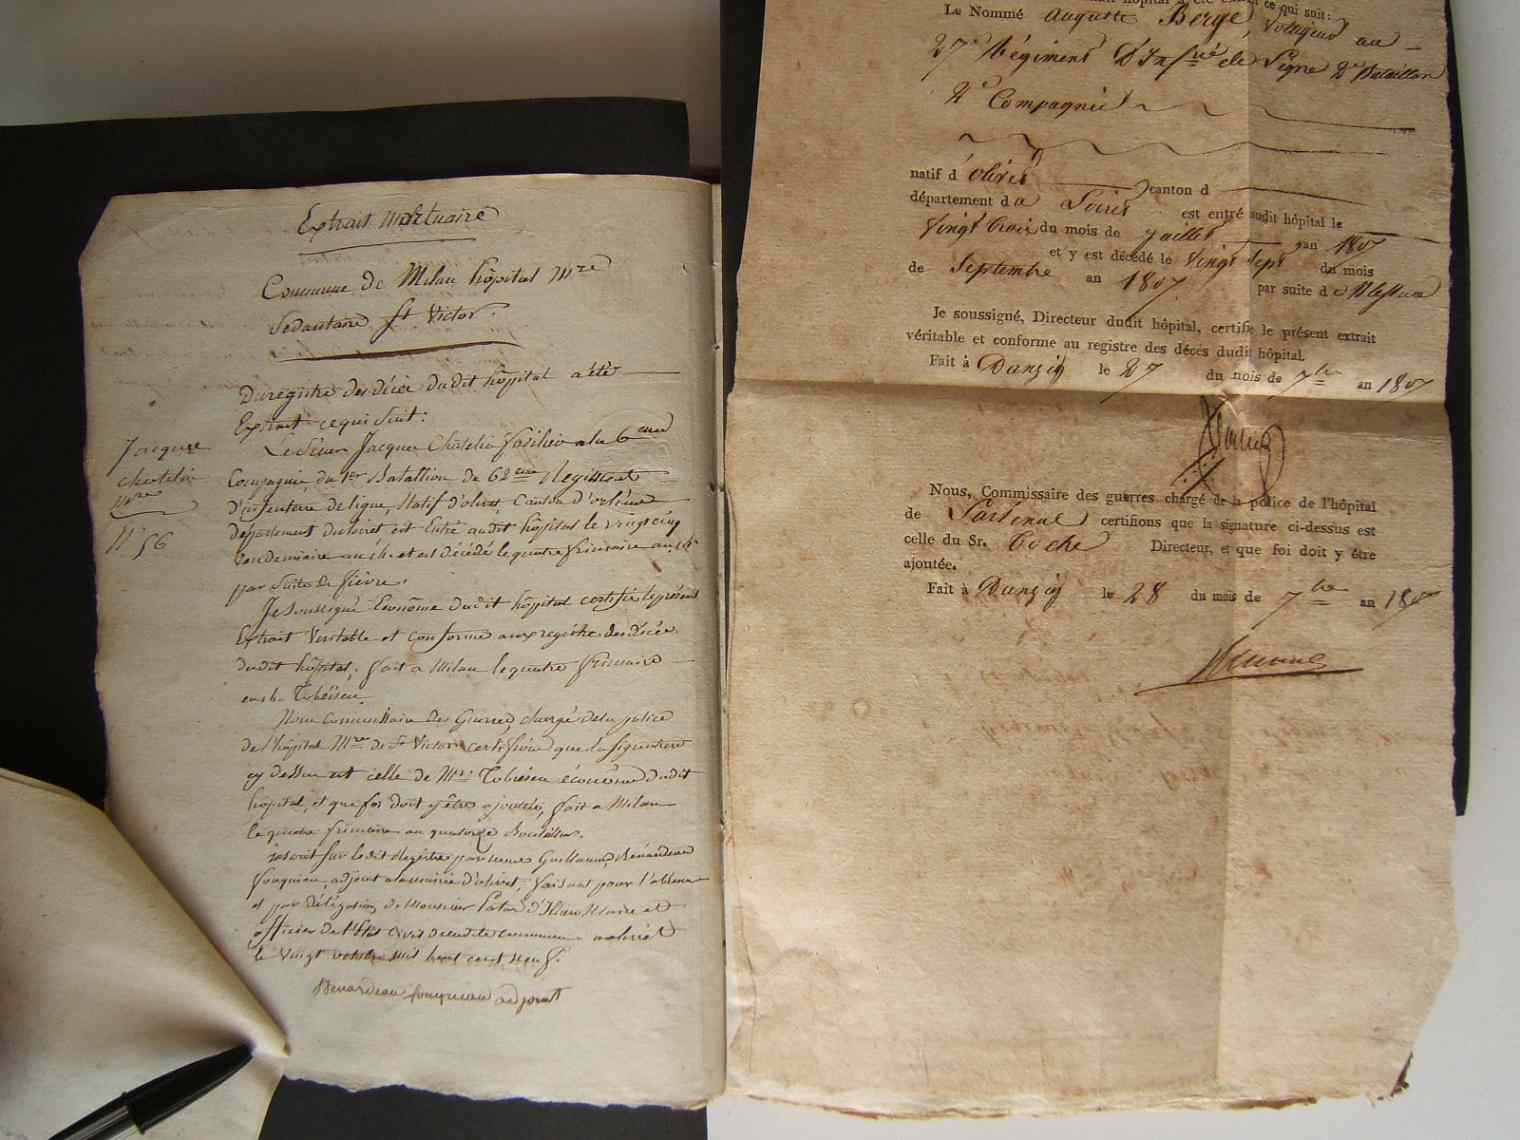 Extrait Mortuaire
Commune de Milan hôpital Mre
Sedantaire St Victor.
Du registre des décès dudit hôpital a été
Extrait ce qui suit:
Jacques
chatelin
N° 56
Le Sieur Jacques Chatelin fusilier a la 6eme
Compagnie du 1er Bataillion de 62eme Regiment
D'infenterie de ligne, Natif d'olivet Canton d'orléans
département du loiret est Entré audit hôpital le vingt cinq
Vendemiaire an 14 et est décédé le quatre frimaire an 14
par Suite de fièvre.
Je Soussigné Econôme dudit hôpital certifie le présent
Extrait Veritable et conforme aux registre des décès
dudit hôpital, fait a Milan le quatre frimaire
an 14
Nous Commissaire des Guerres, chargé de la police
de l'hôpital Mre de St Victor certifions que la signature
cy dessus est celle de Mr. économe dudit
hôpital, et que foi doit y être ajoutée, fait a Milan
le quatre frimaire an quatorze
inscrit sur le dit Registre par nous Guillaume Benardeau
fouqueau, adjoint a la mairie d'olivet, faisant pour l'absence
et par délégation de Monsieur Maire et
officier de l'État Civil de ladite commune
le vingt octobre mil huit cent neuf.
Benardeau fouqueau adjoint
ce qui suit:
Le Nommé Auguste Berge, voltigeur au
27e Régiment D'Infrie de Ligne 2e Bataillon
2e Compagnie
natif d'olivet canton d
département du Loiret est entré audit hôpital le
vingt trois du mois de juillet an 1807
et y est décédé le vingt sept du mois
de Septembre an 1807 par suite de Blessure
Je soussigné, Directeur dudit hôpital, certifie le présent extrait
véritable et conforme au registre des décès dudit hôpital.
Fait à Danzig le 27 du mois de 7bre an 1807
Nous, Commissaire des guerres chargé de la police de l'hôpital
de certifions que la signature ci-dessus est
celle du Sr. Directeur, et que foi doit y être
ajoutée.
Fait à Danzig le 28 du mois de 7bre an 1807